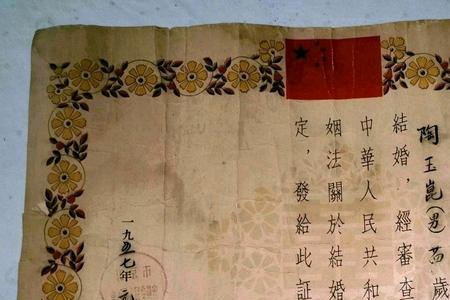 陶玉崑(男)
結婚，經審查
中華人民共和
姻法關於結婚
定，發給此証
一九五七年元
市